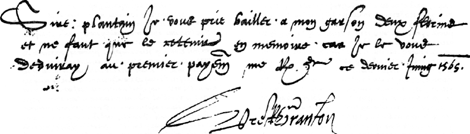 Sire plantain Je vous prie bailler a mon garson deux florins
et ne faut que le retenir en memoire car Je le vous
deduiray au premier payem ce dernier Juing 1565.